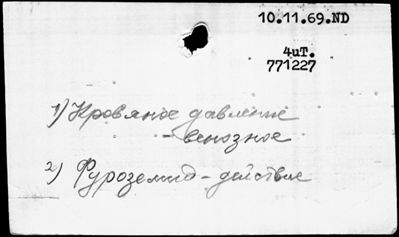 10.11.69.ND
4иТ.
771227
1) Кровяное давление
- венозное
2) Фуроземид - действие